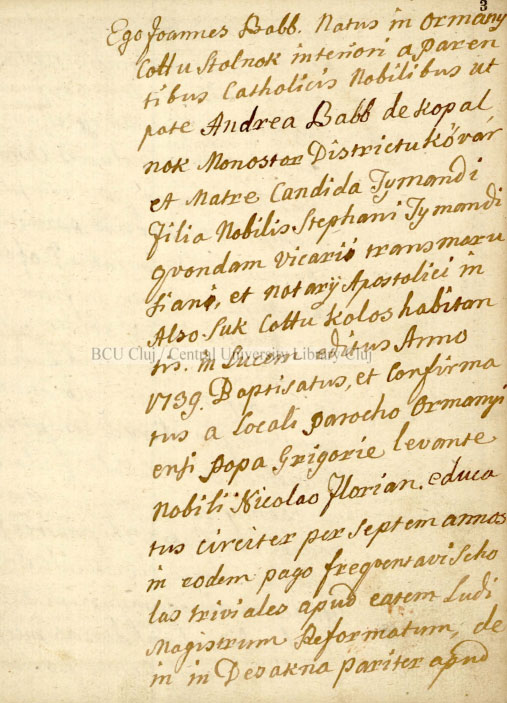 3
Ego Joannes Babb. Natus in Ormany
Cottu Stolnok interiori a paren
tibus Catholicis Nobilibus ut
pote Andrea Babb de kopal
nok Monostor Districtu kővár
et Matre Candida Tymandi
filia Nobilis Stephani Tymandi
quondam Vicarii transmaru
siani, et notarÿ Apostolici in
Also-Suk Cottu kolos habitan
tis. in Lucem editus Anno
BCU Cluj / Central University Library Cluj
1739. Baptisatus, et Confirma
tus a locali parocho Ormanyi
ensi popa Grigorie levante
Nobili Nicolao Florian. educa
tus circiter per septem annos
in eodem pago frequentavi Scho
las triviales apud eatem Ludi
Magistrum Reformatum, de
in in Desakna pariter apud